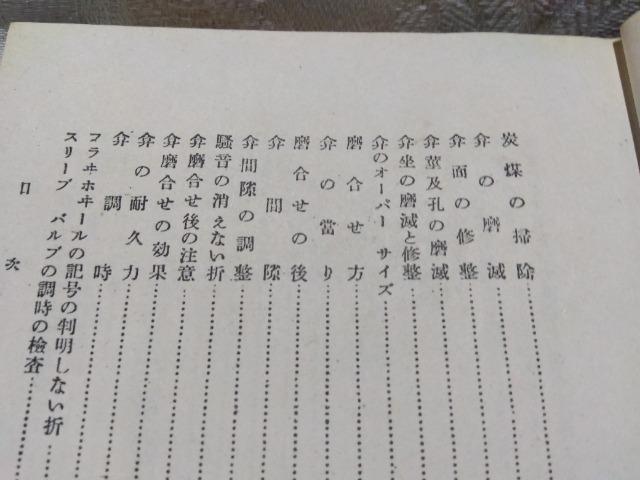 炭煤の掃除
弁の磨滅
弁面の修整
弁莖及孔の磨滅
弁坐の磨滅と修整
弁のオーバー サイズ
磨合せ方
弁の當り
磨合せの後
弁間隙
弁間隙の調整
騒音の消えない折
弁磨合せ後の注意
弁磨合せの効果
弁の耐久力
弁調時
フラヰホヰールの記号の判明しない折
スリーブ バルブの調時の檢査
目次